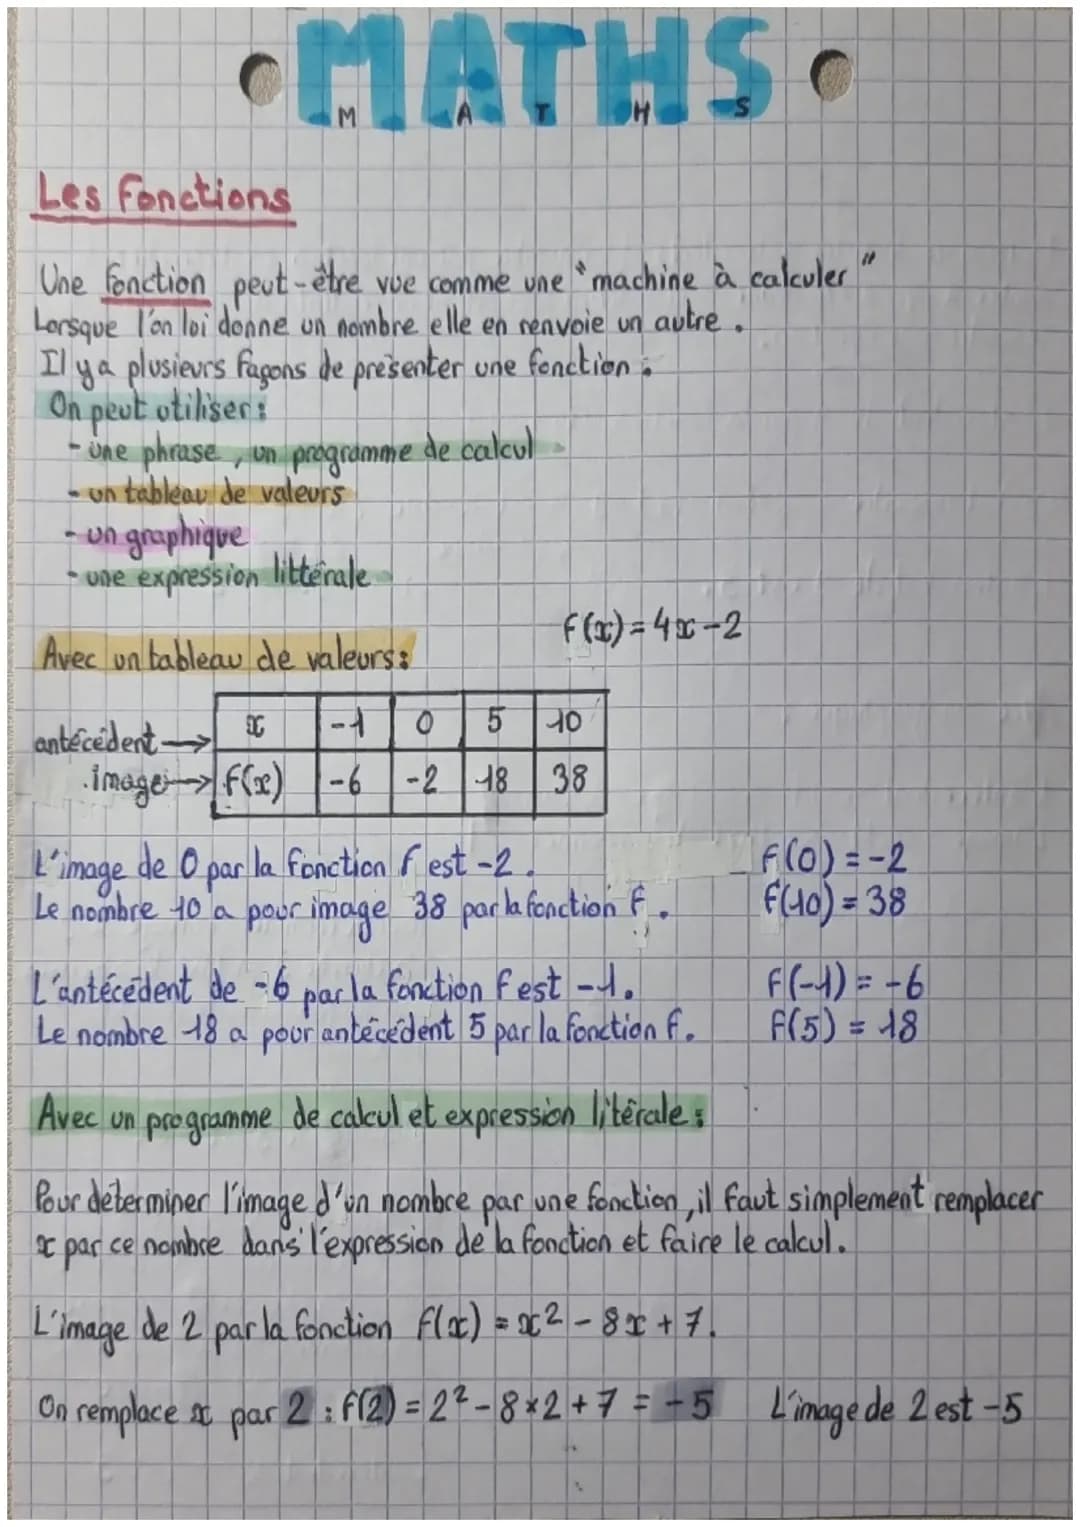 MATHS
M A T H S
Les fonctions
Une fonction peut-être vue comme une "machine à calculer"
Lorsque l'on loi donne un nombre elle en renvoie un autre.
Il y a plusieurs façons de présenter une fonction :
On peut utiliser :
- une phrase, un programme de calcul
- un tableau de valeurs
- un graphique
- une expression littérale
f(x) = 4x - 2
Avec un tableau de valeurs :
antécédent → x -1 0 5 10
image → f(x) -6 -2 18 38
L'image de 0 par la fonction f est -2. f(0) = -2
Le nombre 10 a pour image 38 par la fonction f. f(10) = 38
L'antécédent de -6 par la fonction f est -1. f(-1) = -6
Le nombre 18 a pour antécédent 5 par la fonction f. f(5) = 18
Avec un programme de calcul et expression litérale :
Pour déterminer l'image d'un nombre par une fonction, il faut simplement remplacer
x par ce nombre dans l'expression de la fonction et faire le calcul.
L'image de 2 par la fonction f(x) = x² - 8x + 7.
On remplace x par 2 : f(2) = 2² - 8×2 + 7 = -5 L'image de 2 est -5